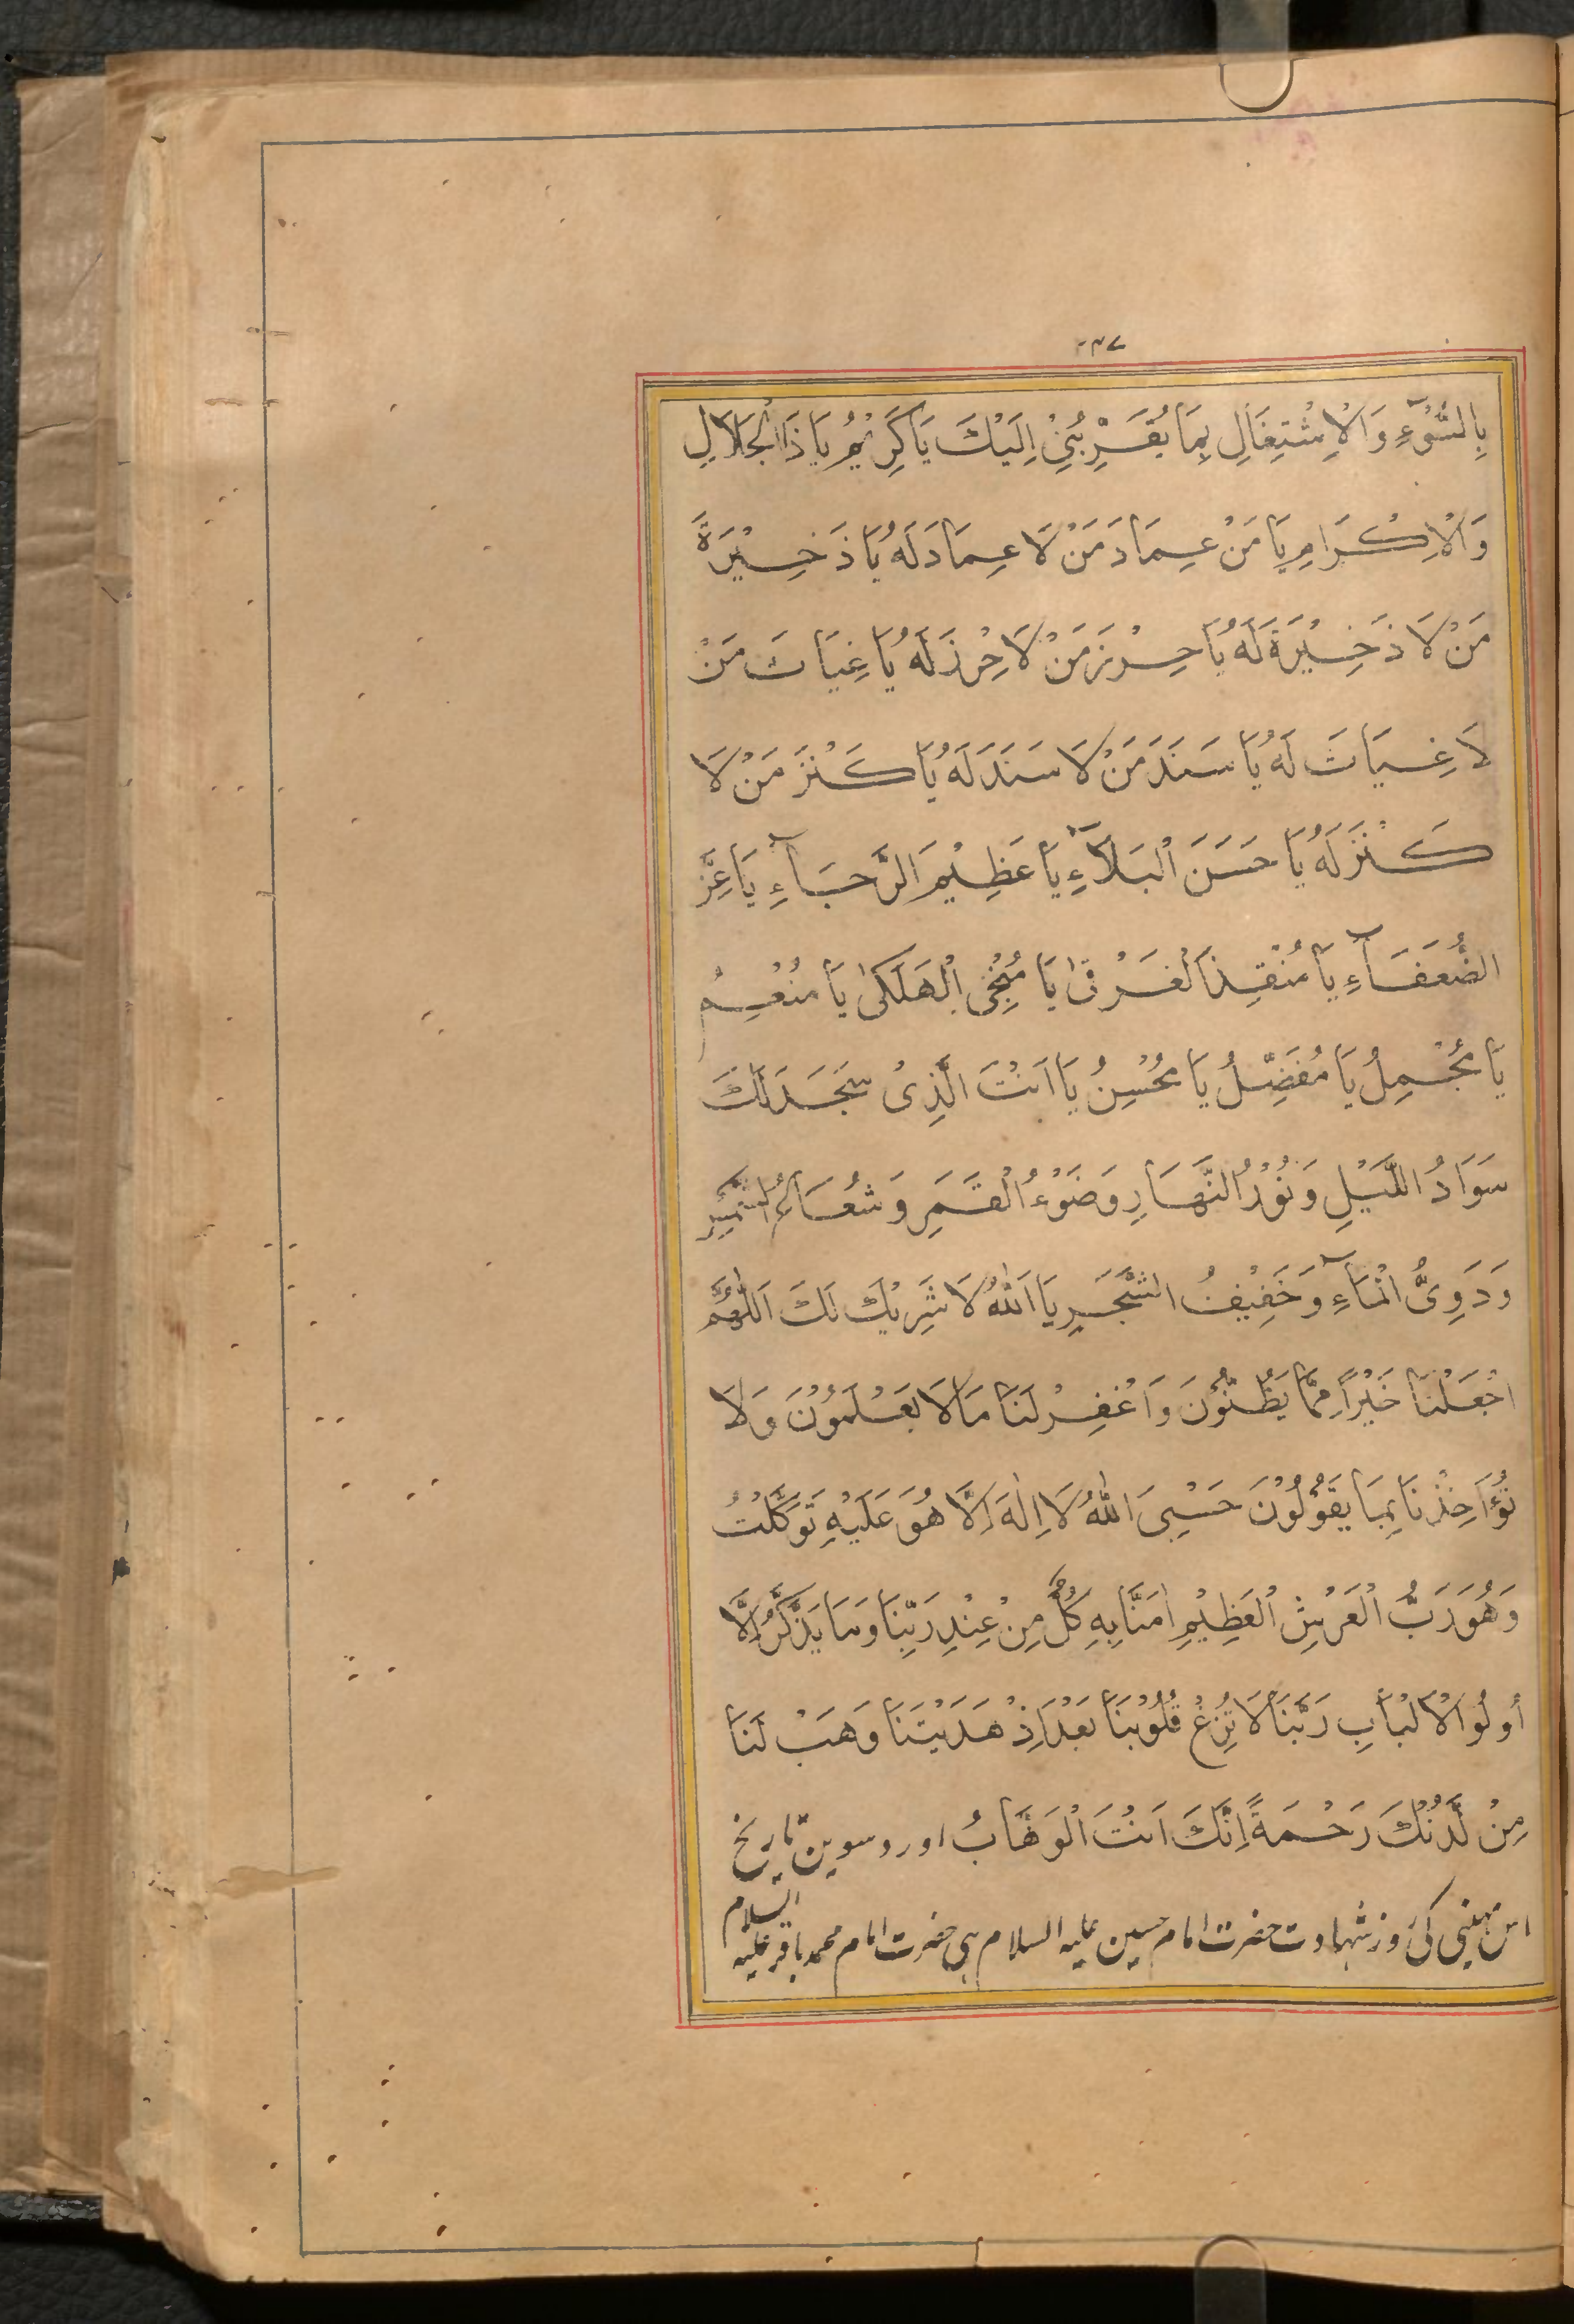 بِالسُّوْٓءِ وَالْاِشْتِغَالِ بِمَا يُقَرِّبُنِيْ اِلَيْكَ يَا كَرِيْمُ يَا ذَا الْجَلَالِ
وَالْاِكْرَامِ يَا مَنْ عِمَادَ مَنْ لَا عِمَادَ لَهُ يَا ذَخِيْرَةَ
مَنْ لَا ذَخِيْرَةَ لَهُ يَا حِرْزَ مَنْ لَا حِرْزَ لَهُ يَا غِيَاثَ مَنْ
لَا غِيَاثَ لَهُ يَا سَنَدَ مَنْ لَا سَنَدَ لَهُ يَا كَنْزَ مَنْ لَا
كَنْزَ لَهُ يَا حَسَنَ الْبَلَآءِ يَا عَظِيْمَ الرَّجَآءِ يَا عِزَّ
الضُّعَفَآءِ يَا مُنْقِذَ الْغَرْقٰى يَا مُنْجِيَ الْهَلَكٰى يَا مُنْعِمُ
يَا مُجْمِلُ يَا مُفَضِّلُ يَا مُحْسِنُ يَا اَنْتَ الَّذِىْ سَجَدَ لَكَ
سَوَادُ اللَّيْلِ وَنُوْرُ النَّهَارِ وَضَوْءُ الْقَمَرِ وَشُعَاعُ الشَّمْسِ
وَدَوِىُّ الْمَآءِ وَخَفِيْفُ الشَّجَرِ يَا اَللّٰهُ لَا شَرِيْكَ لَكَ اَللّٰهُمَّ
اجْعَلْنَا خَيْرًا مِمَّا يَظُنُّوْنَ وَاغْفِرْ لَنَا مَا لَا يَعْلَمُوْنَ وَلَا
تُؤَاخِذْنَا بِمَا يَقُوْلُوْنَ حَسْبِىَ اللّٰهُ لَا اِلٰهَ اِلَّا هُوَ عَلَيْهِ تَوَكَّلْتُ
وَهُوَ رَبُّ الْعَرْشِ الْعَظِيْمِ اٰمَنَّا بِهٖ كُلٌّ مِنْ عِنْدِ رَبِّنَا وَمَا يَذَّكَّرُ اِلَّا
اُولُوا الْاَلْبَابِ رَبَّنَا لَا تُزِغْ قُلُوْبَنَا بَعْدَ اِذْ هَدَيْتَنَا وَهَبْ لَنَا
مِنْ لَّدُنْكَ رَحْمَةً اِنَّكَ اَنْتَ الْوَهَّابُ اور دسوین تاریخ
اس مہینی کی روز شہادت حضرت امام حسین علیہ السلام ہی حضرت امام محمد باقر علیہ السلام